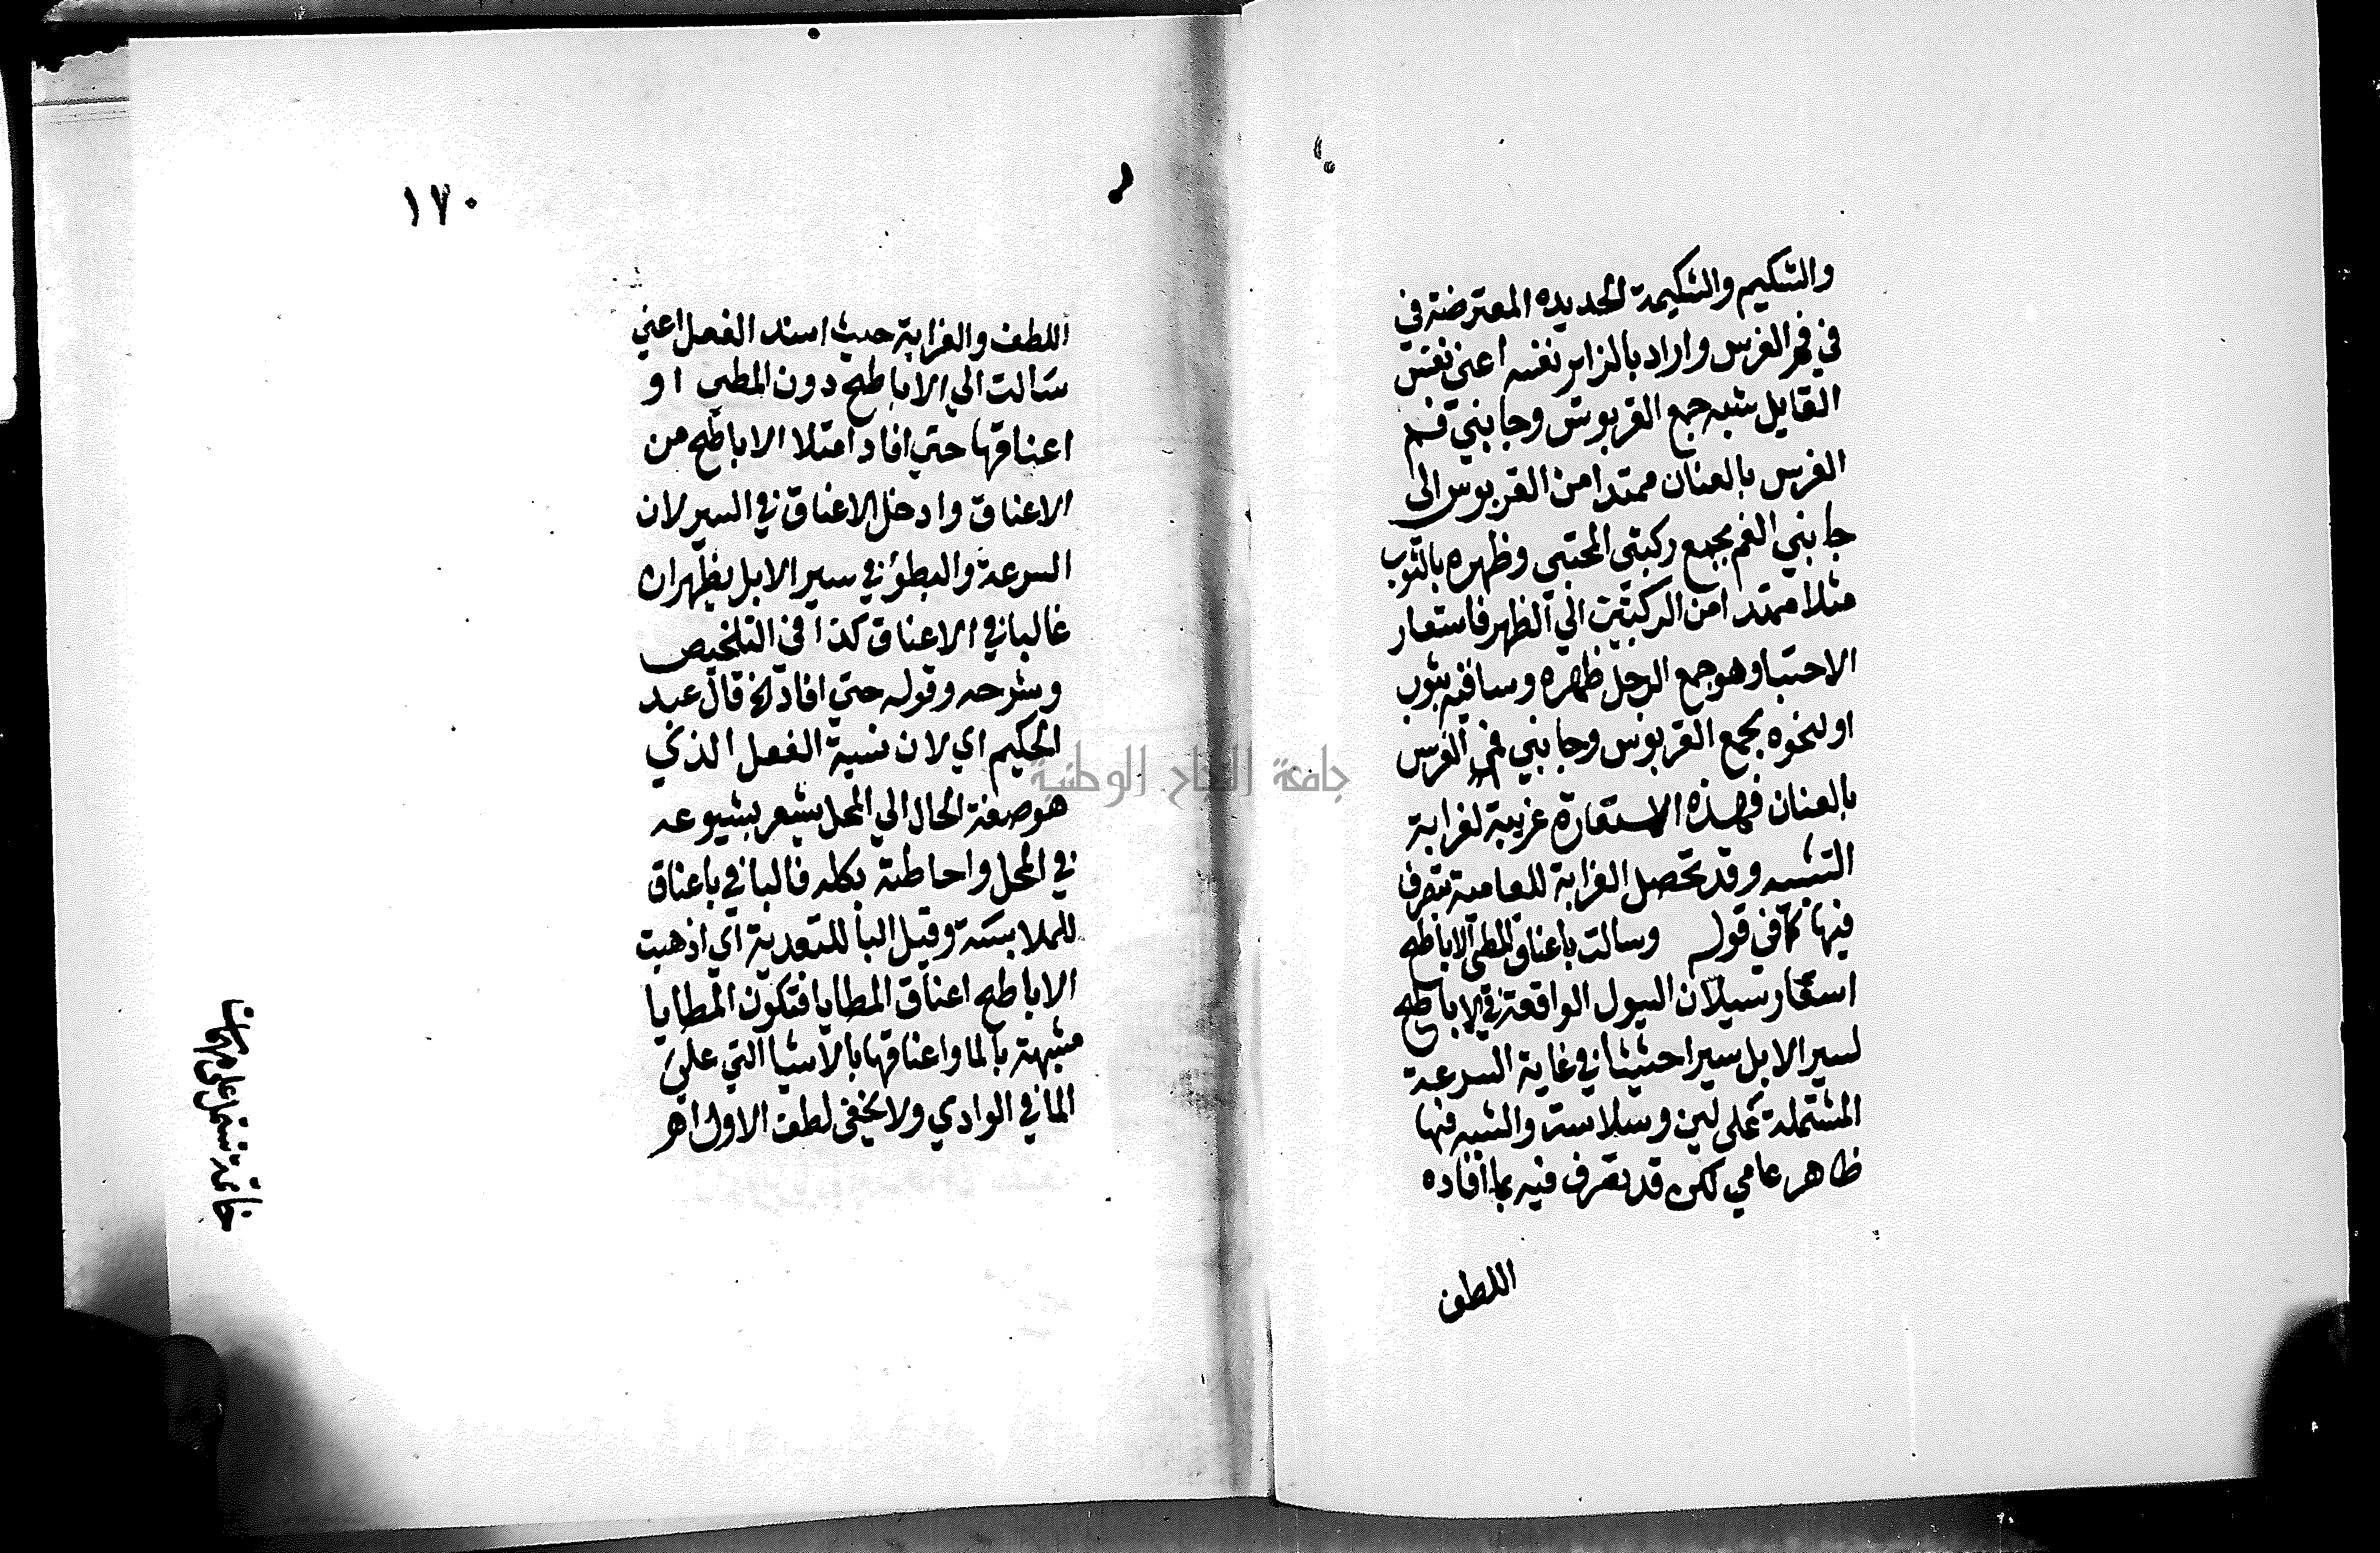 والشكيم والشكيمة الحديده المعترضة في
في فم الفرس واراد بالزاير نفسه اعني نفس
القايل شبه جمع القربوس وجابني فم
الفرس بالعنان ممتدا من القربوس الى
جابني الفم بجمع ركبتي المحتبي وظهره بالثوب
مثلا ممتدا من الركبتين الي الظهر فاستعار
الاحتبا وهو جمع الرجل ظهره وساقيه بثوب
او نحوه بجمع القربوس وجابني فم الفرس
بالعنان فهذه الاستعارة غريبة لغرابة
التشبيه وقد تحصل الغرابة للعامية بتصرف
فيها كما في قوله وسالت باعناق المطي الاباطح
استعار سيلان السيول الواقعة في الاباطح
لسير الابل سيرا حثيثا في غاية السرعة
المشتملة على لين وسلاسة والشبه فيها
ظاهر عامي لكن قد تصرف فيه بما افاده
اللطف
١٧٠
اللطف والغرابة حيث اسند الفعل اعني
سالت الي الاباطح دون المطي او
اعناقها حتي افاد امتلا الاباطح من
الاعناق وادخل الاعناق في السير لان
السرعة والبطؤ في سير الابل يظهران
غالبا في الاعناق كذا في التلخيص
وشرحه وقوله حتي افاد الخ قال عبد
الحكيم اي لان نسبة الفعل الذي
هو صفة الحال الي المحل يشعر بشيوعه
في المحل واحاطته بكله فالبا في باعناق
للملابسة وقيل البا للتعدية اي اذهبت
الاباطح اعناق المطايا فتكون المطايا
مشبهة بالما واعناقها بالاشيا التي على
الما في الوادي ولا يخفى لطف الاول اهـ
خاتمة تشتمل على
جامعة النجاح الوطنية